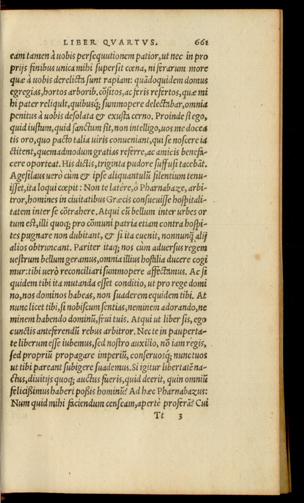 LIBER QVARTVS. 661
eam tamen à uobis persequutionem patior, ut nec in pro
prijs finibus unica mihi supersit cœna, ni ferarum more
quæ à uobis derelicta sunt rapiam: quādoquidem domus
egregias, hortos arborib. cōsitos, ac feris refertos, quæ mi
hi pater reliquit, quibusq; summopere delectabar, omnia
penitus à uobis desolata & exusta cerno. Proinde si ego,
quid iustum, quid sanctum sit, non intelligo, uos me docea
tis oro, quo pacto talia uiris conueniant, qui se noscere ia
ctitent, quemadmodum gratias referre, ac amicis benefa
cere oporteat. His dictis, triginta pudore suffusi tacebāt.
Agesilaus uerò cùm & ipse aliquantulū silentium tenu-
isset, ita loqui cœpit: Non te latêre, ô Pharnabaze, arbi-
tror, homines in ciuitatibus Græcis consueuisse hospitali-
tatem inter se cōtrahere. Atqui cū bellum inter urbes or
tum est, illi quoq; pro cōmuni patria etiam contra hospi-
tes pugnare non dubitant, & si ita euenit, nonnunq̃ alij
alios obtruncant. Pariter itaq; nos cùm aduersus regem
uestrum bellum geramus, omnia illius hostilia ducere cogi
mur: tibi uerò reconciliari summopere affectamus. Ac si
quidem tibi ita mutanda esset conditio, ut pro rege domi
no, nos dominos habeas, non suaderem equidem tibi. At
nunc licet tibi, si nobiscum sentias, neminem adorando, ne
minem habendo dominū, frui tuis. Atqui ut liber sis, ego
cunctis anteferendū rebus arbitror. Nec te in pauperta-
te liberum esse iubemus, sed nostro auxilio, nō iam regis,
sed propriū propagare imperiū, conseruosq; nunc tuos
ut tibi pareant subigere suademus. Si igitur libertatē na-
ctus, diuitijs quoq; auctus fueris, quid deerit, quin omniū
felicissimus haberi possis hominū? Ad hæc Pharnabazus:
Num quid mihi faciendum censeam, apertè proferā? Cui
Tt 3